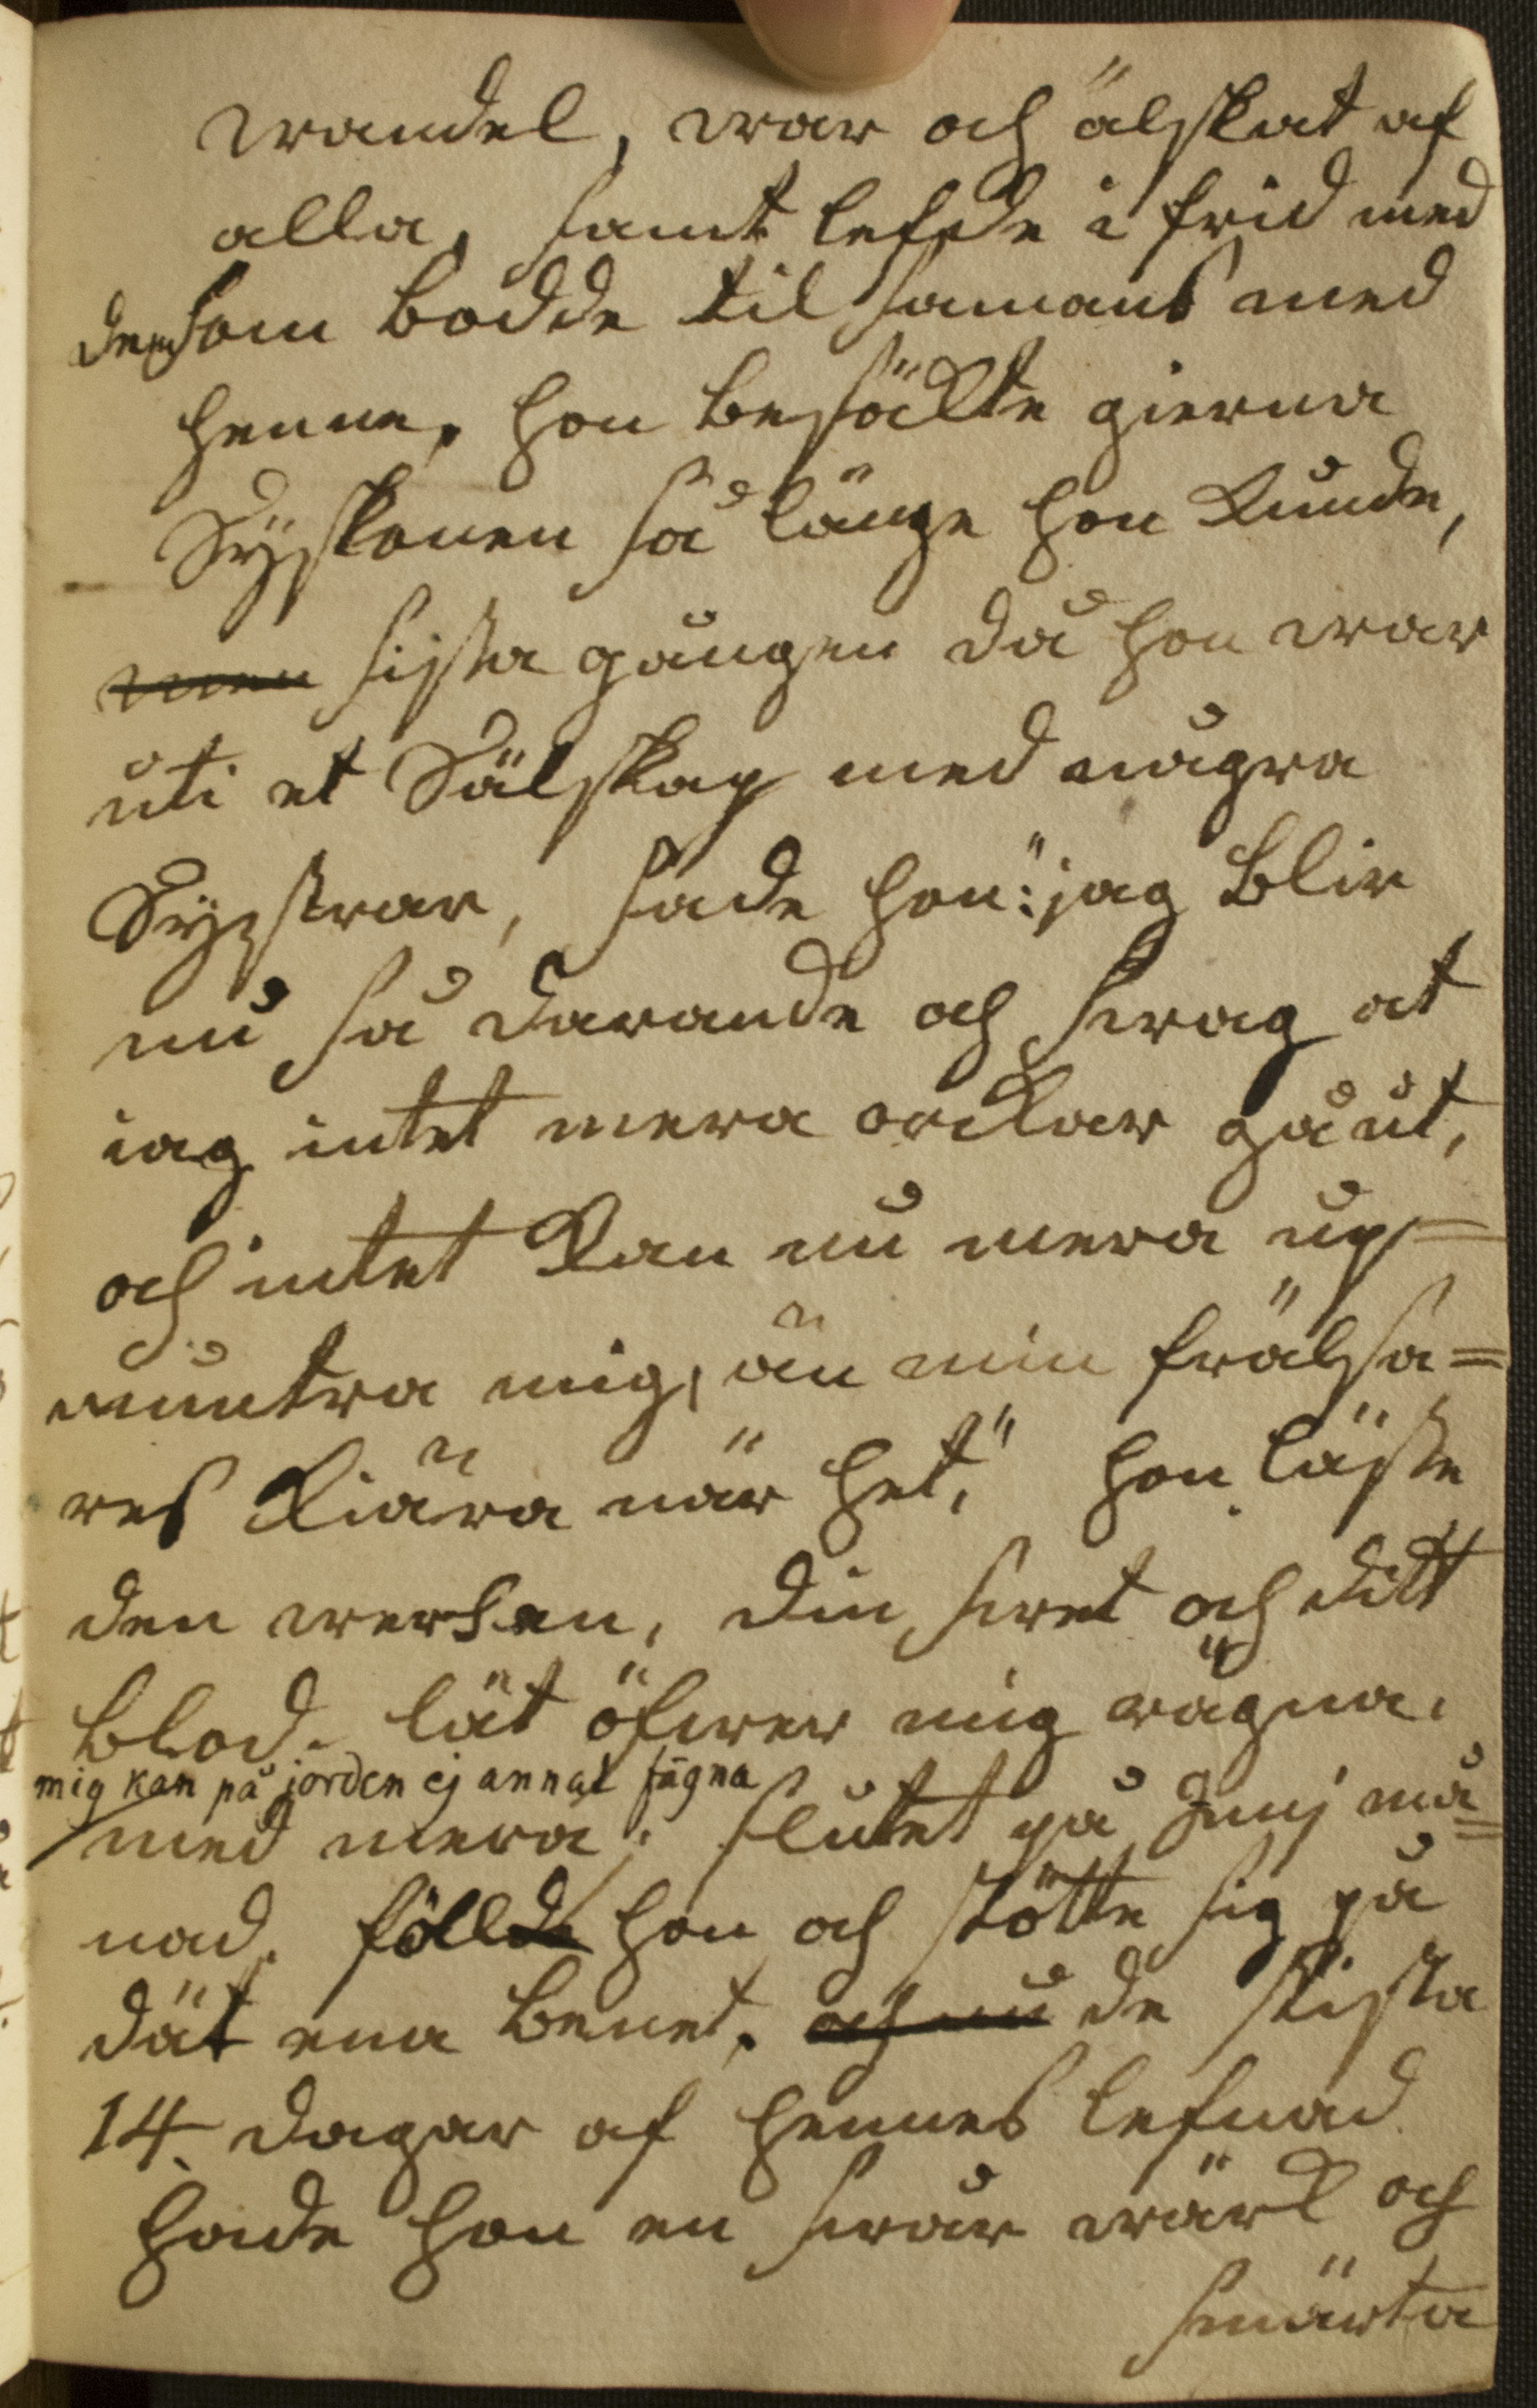 wandel, war och älskat af
alla, samt lefde i frid med
dem som bodde til samans med
henne, hon besökte gierna
Syskonen så länge hon kunde,
men sista gången då hon war
uti et Sälskap med några
Systrar, sade hon: "jag blir
nu så darande och swag at
iag intet mera orckar gå ut,
och intet kan nu mera up-
muntra mig, än min frälsa=
res kiära när het," hon läste
den wersen, din swet och ditt
blod. lät öfwer mig rägna.
mig kan på jorden ej annat fägna
med mera; slutet på Junj må=
nad. föllde hon och stötte sig på
dät ena benet. och nu de sista
14 dagar af hennes lefnad
hade hon en swår wärk och
smärta